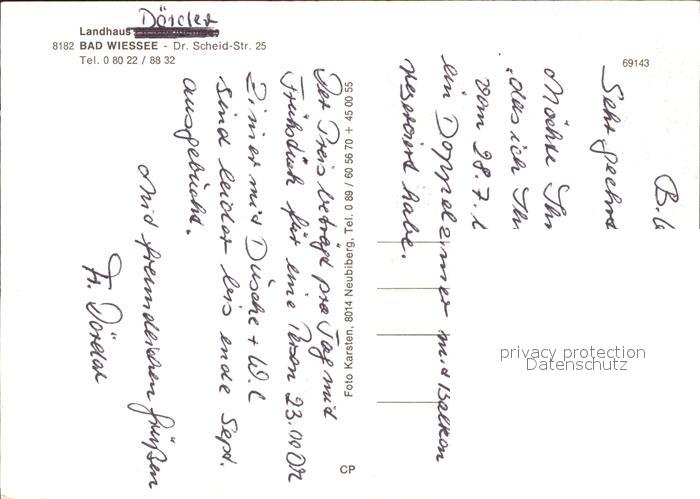 Dörder
Landhaus
8182 BAD WIESSEE - Dr. Scheid-Str. 25
Tel. 0 80 22 / 88 32
69143
B. W
Sehr geehrt
Möchte Ihn
das ich Ihn
vom 28.7. b
ein Doppelzimer mit Balkon
reserviert habe.
Foto Karsten, 8014 Neubiberg, Tel. 0 89 / 60 56 70 + 45 00 55
Der Preis beträgt pro Tag mit
Frühstück für eine Person 23.00 DM
Zimer mit Dusche + W.C
sind leider bis ende Sept.
ausgebucht.
Mit freundlichen Grüßen
Fr. Dörder
CP
privacy protection
Datenschutz